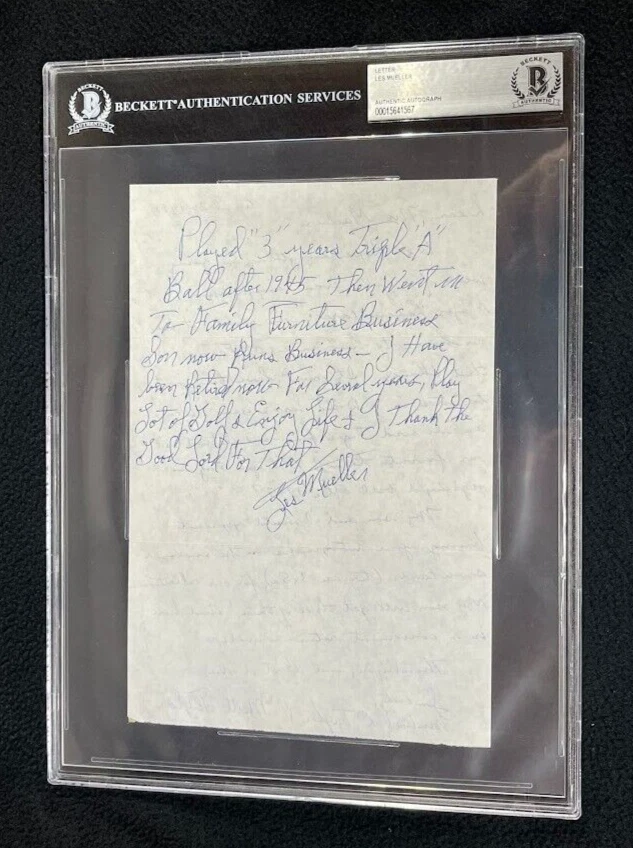 BECKETT
B
AUTHENTIC
BECKETT® AUTHENTICATION SERVICES
LETTER
LES MUELLER
AUTHENTIC AUTOGRAPH
00015641567
BECKETT
B
AUTHENTIC
Played "3" years Triple "A"
Ball after 1945 Then Went in
To Family Furniture Business
Son now Runs Business - I Have
been Retired now For Several years, Play
Lot of Golf & Enjoy Life & I Thank the
Good Lord For That
Les Mueller